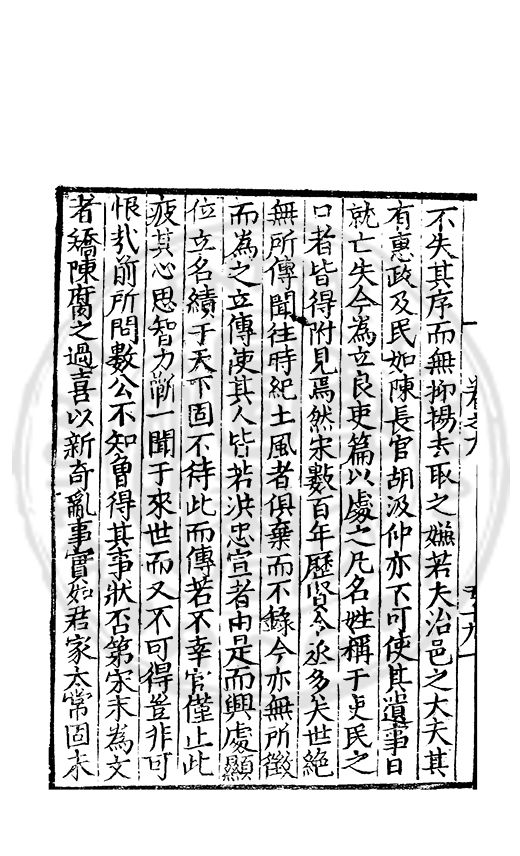 不失其序而無抑揚去取之嫌若夫治邑之大夫其
有惠政及民如陳長官胡汲仲亦不可使其遺事日
就亡失今為立良吏篇以處之凡名姓稱于吏民之
口者皆得附見焉然宋數百年歷賢令丞多矣世絕
無所傳聞往時紀土風者俱棄而不錄今亦無所徵
而為之立傳使其人皆若洪忠宣者由是而興處顯
位立名績于天下固不待此而傳若不幸官僅止此
疲其心思智力斯一聞于來世而又不可得豈非可
恨㢤前所問數公不知曾得其事狀否第宋末為文
者矯陳腐之過喜以新奇亂事實如君家太常固未
卷之九